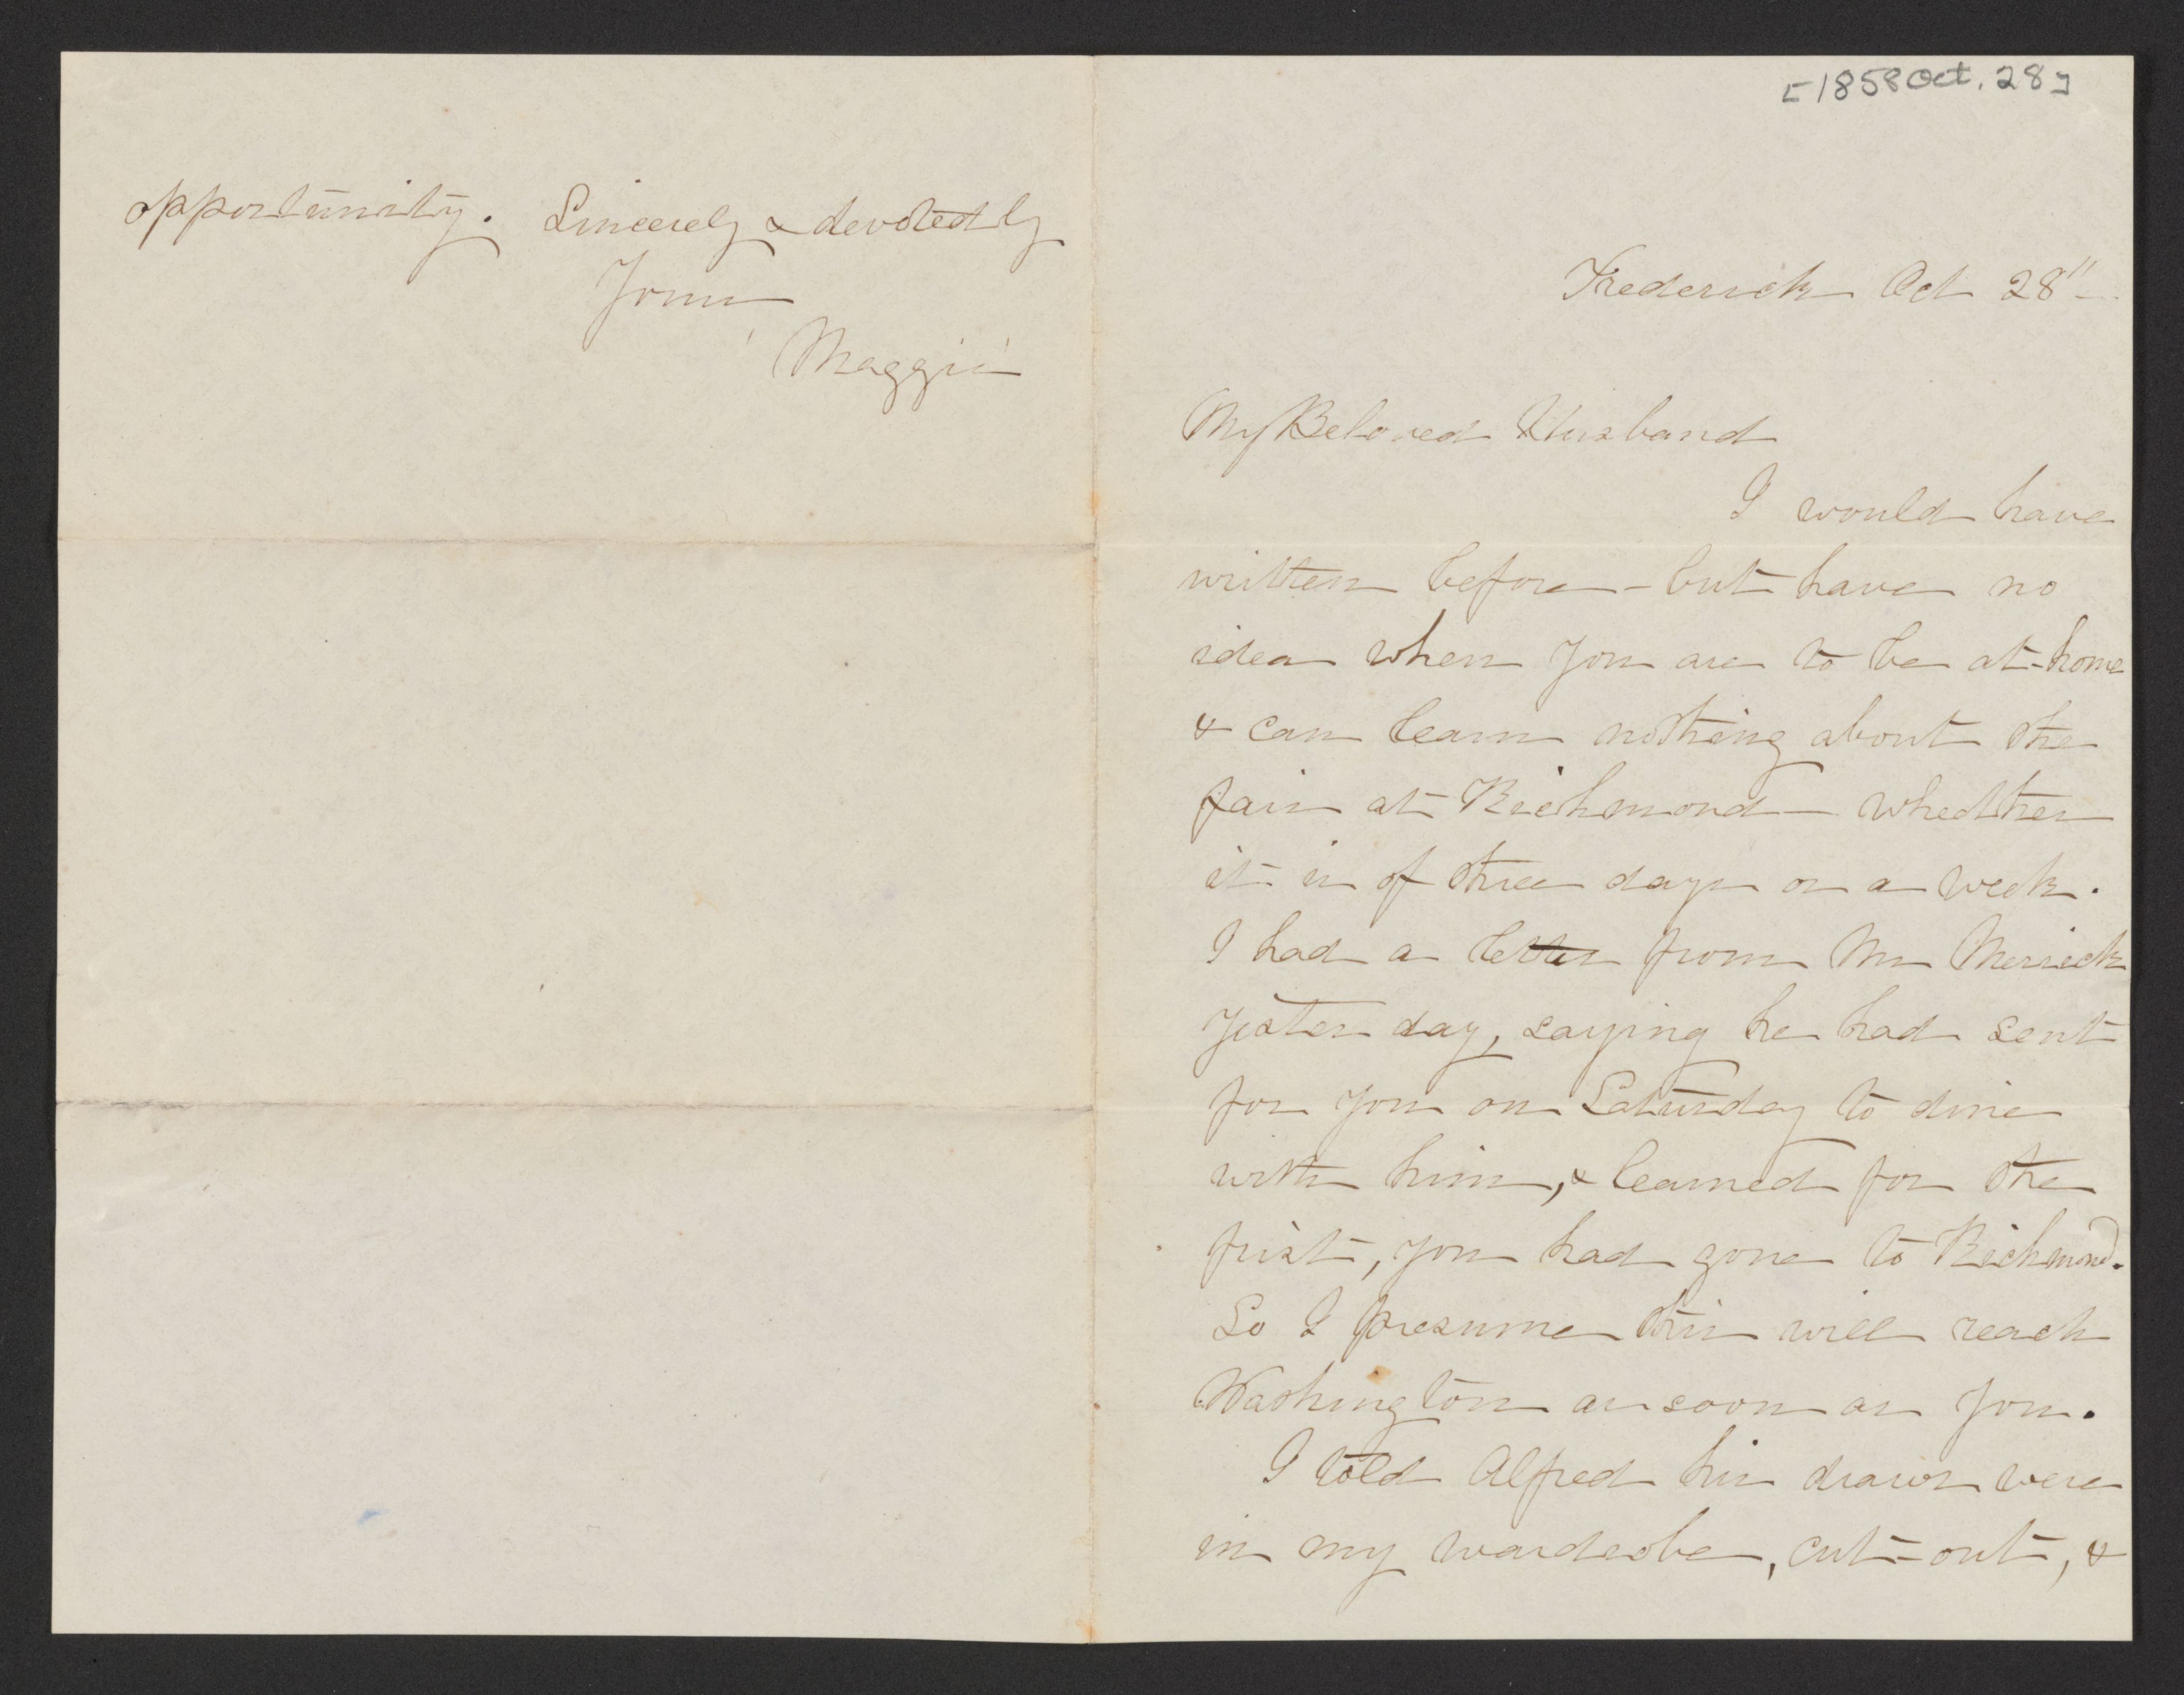 opportunity. Sincerely & devotedly
Your
Maggie
[1858 Oct. 28]
Frederick Oct 28"
My Beloved Husband
I would have
written before - but have no
idea when you are to be at-home
& can learn nothing about the
fair at Richmond - whedther
it is of three days or a week.
I had a letter from Mr Merrick
yesterday, saying he had sent
for you on Saturday to dine
with him, & learned for the
first, you had gone to Richmond.
So I presume this will reach
Washington as soon as you.
I told Alfred his drawrs were
in my wardrobe, cut-out, &